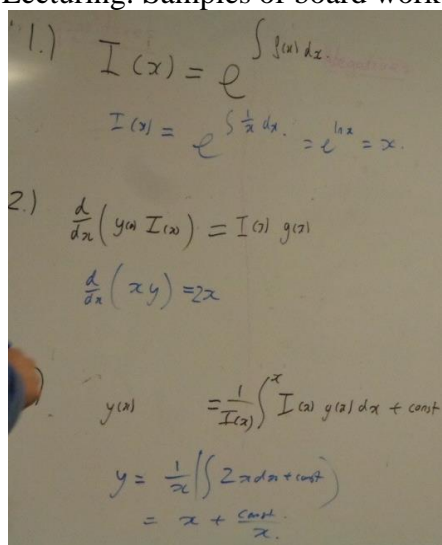 Lecturing: Samples of board work
1.) I(x) = e^{∫ f(x) dx}
I(x) = e^{∫ 1/x dx.} = e^{ln x} = x.
2.) d/dx ( y(x) I(x) ) = I(x) g(x)
d/dx ( xy ) = 2x
) y(x) = 1/I(x) ∫^x I(x) g(x) dx + const
y = 1/x ( ∫ 2x dx + const )
= x + const/x.